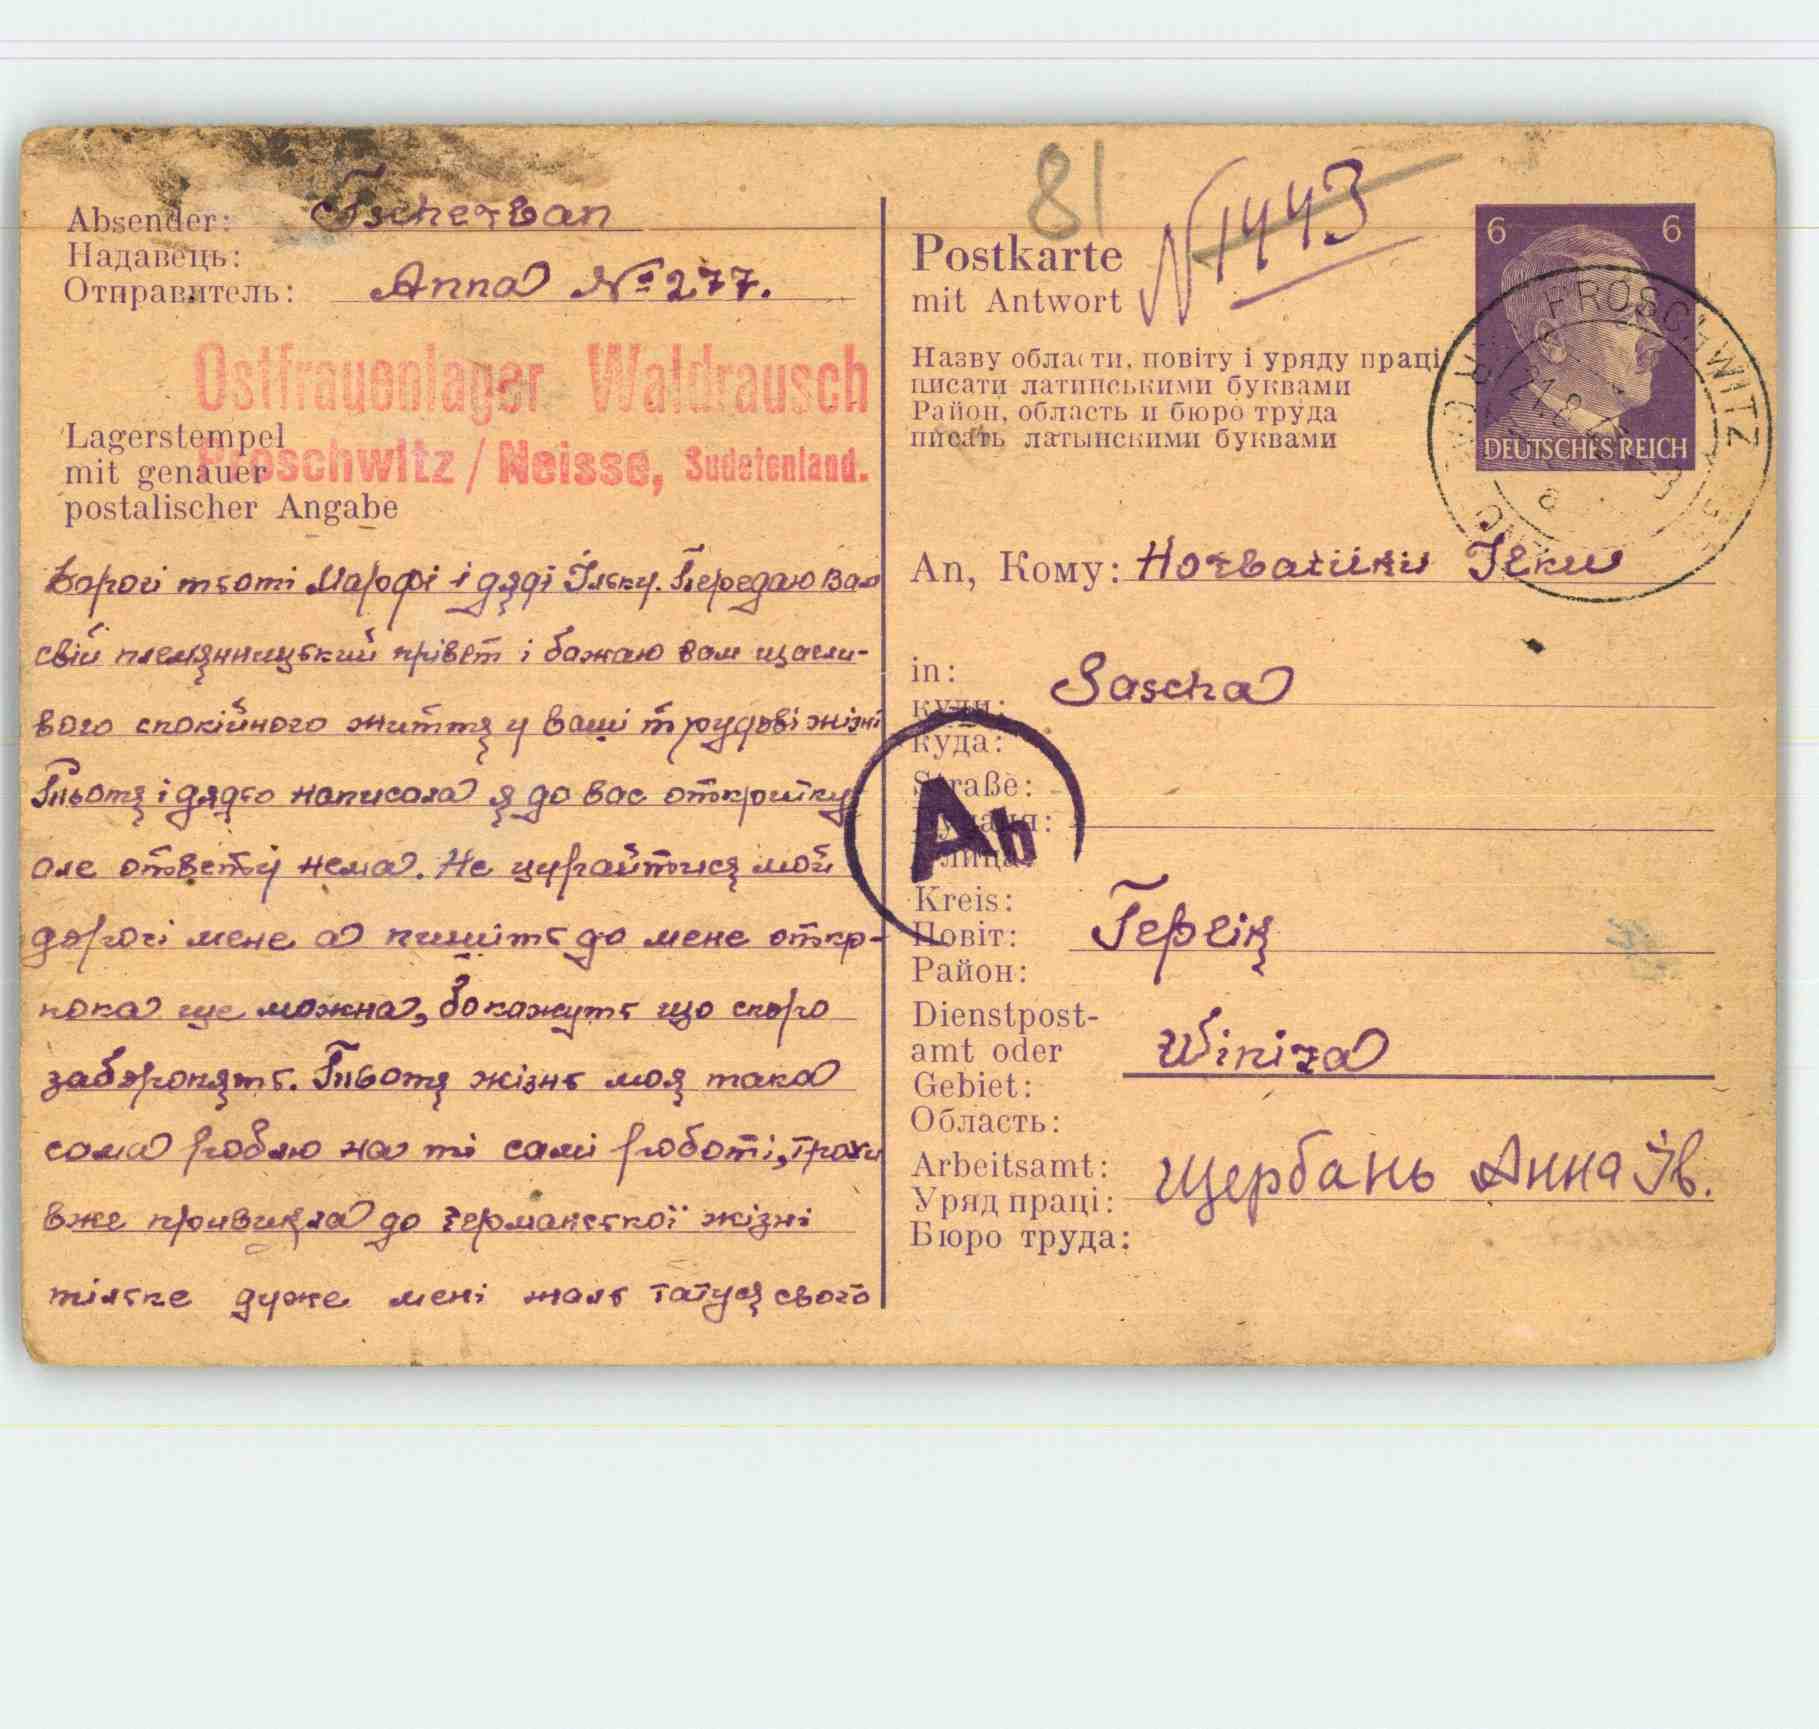 Absender: Tscherban
Надавець:
Отправитель: Anna № 277.
Ostfrauenlager Waldrausch
Proschwitz / Neisse, Sudetenland.
Lagerstempel
mit genauer
postalischer Angabe
Дорогі тьоті Марфі і дяді Ільку. Передаю вам
свій племянницький прівєт і бажаю вам щасли-
вого спокійного життя у ваші трудові жізні
Тьотя і дядьо написала я до вас открытку
але отвєту нема. Не цурайтися мої
дорогі мене а пишіть до мене откр-
пока ще можна, бо кажуть що скоро
заборонять. Тьотя жізнь моя така
сама роблю на ті самі роботі, трохи
вже привикла до германської жізні
тільке дуже мені жаль татуся свого
81
N 1443
Postkarte
mit Antwort
Назву области, повіту і уряду праці
писати латинськими буквами
Район, область и бюро труда
писать латынскими буквами
6 6
DEUTSCHES REICH
PROSCHWITZ
An, Кому: Horbatiuku Ilku
in: Sascha
куди:
куда:
Ab
Straße:
Kreis:
Повіт:
Район:
Dienstpost-
amt oder Winiza
Gebiet:
Область:
Arbeitsamt: Щербань Анна Ів.
Уряд праці:
Бюро труда: